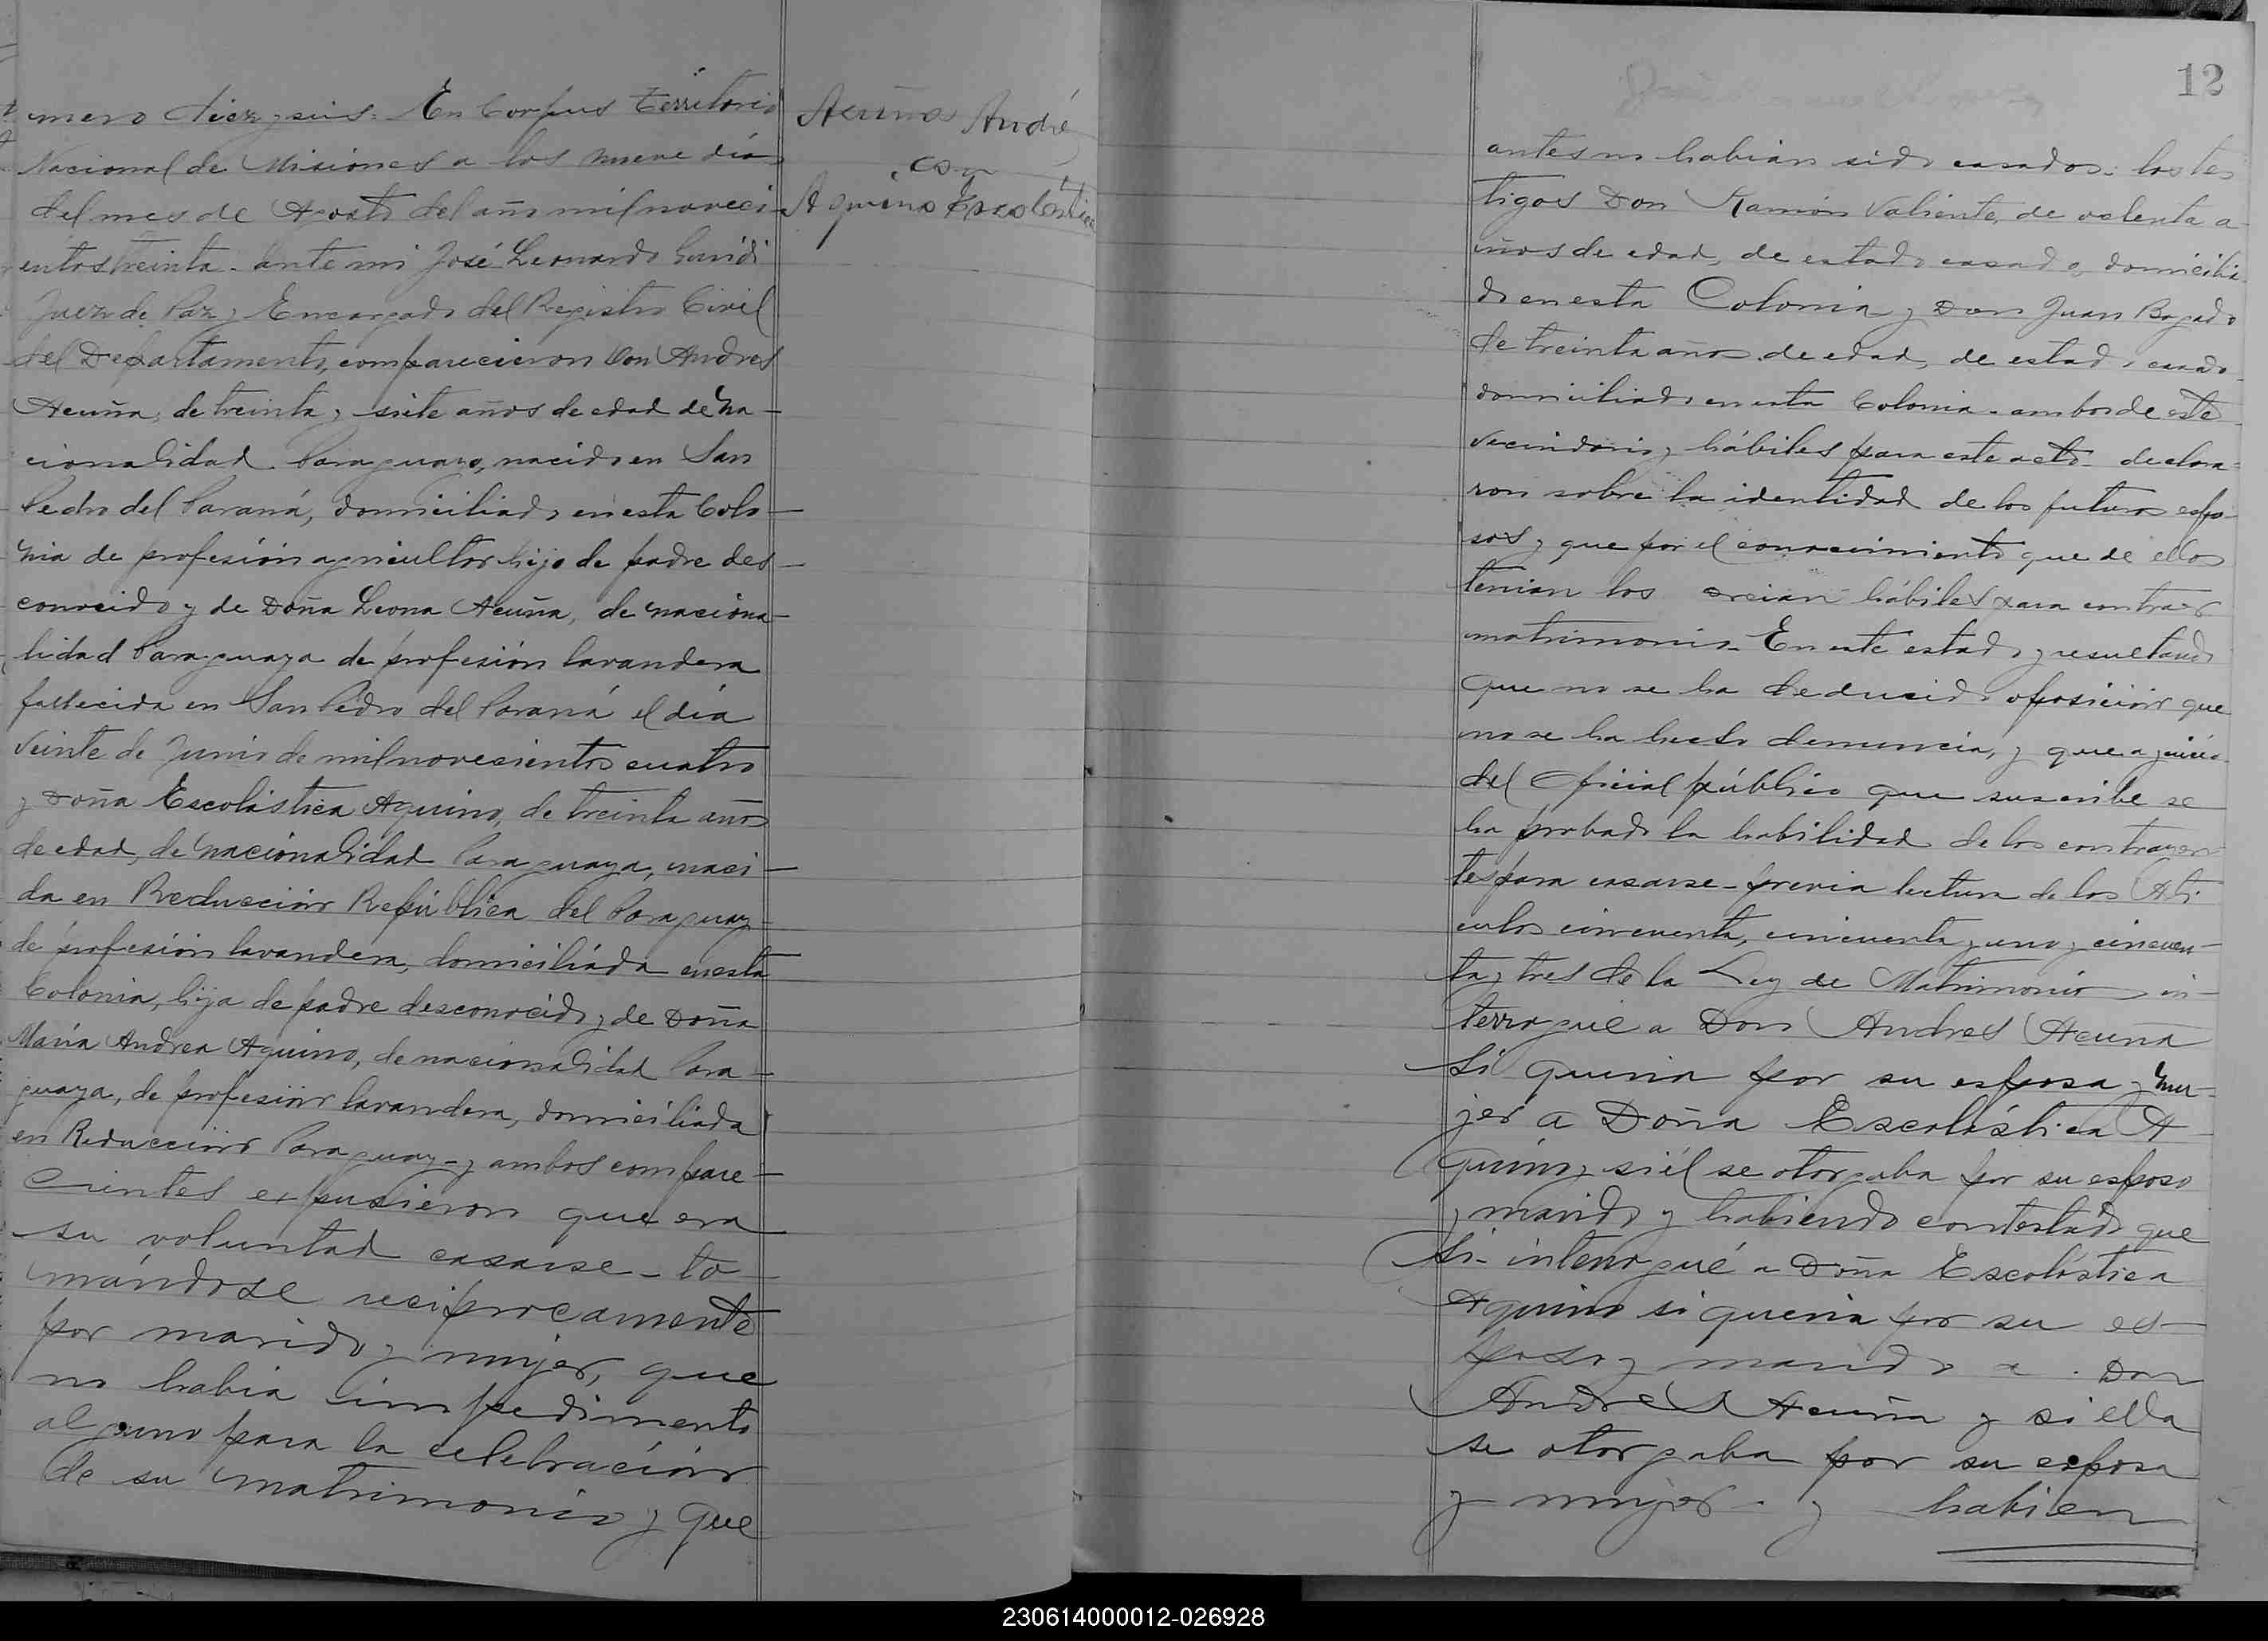 mero diez y seis. En Corpus Territorio
Nacional de Misiones a los nueve días
del mes de Agosto del año mil noveci-
entos treinta. Ante mi José Leonardo
Juez de Paz y Encargado del Registro Civil
del Departamento, comparecieron Don Andres
Acuña, de treinta y siete años de edad de na-
cionalidad Paraguayo, nacido en San
Pedro del Paraná, domiciliado en esta Colo-
nia de profesión agricultor hijo de padre des-
conocido y de Doña Leona Acuña, de naciona-
lidad Paraguaya de profesión lavandera
fallecida en San Pedro del Paraná el día
veinte de Junio de mil novecientos cuatro
y Doña Escolástica Aquino, de treinta años
de edad, de nacionalidad Paraguaya, naci-
da en Reducción República del Paraguay
de profesión lavandera, domiciliada en esta
Colonia, hija de padre desconocido y de Doña
María Andrea Aquino, de nacionalidad Para-
guaya, de profesión lavandera, domiciliada
en Reducción Paraguay - y ambos compare-
cientes expusieron que era
su voluntad casarse - to-
mándose reciprocamente
por marido y mujer, que
no habia impedimento
alguno para la celebración
de su matrimonio y que
Acuña André
con
Aquino Escolástica
12
antes no habian sido casados. los tes
tigos Don Ramón Valiente, de a-
ños de edad, de estado casado, domicilia-
do en esta Colonia y Don Juan Bogado
de treinta años de edad, de estado casado
domiciliado en esta Colonia - ambos de este
vecindario y hábiles para este acto - declara-
ron sobre la identidad de los futuros espo-
sos y que por el conocimiento que de ellos
tenian los creian hábiles para contraer
matrimonio - En este estado y resultando
que no se ha deducido oposición que
no se ha hecho denuncia, y que a juicio
del Oficial público que suscribe se
ha probado la habilidad de los contrayen-
tes para casarse - previa lectura de los Arti-
culos cincuenta, cincuenta y uno y cincuen-
ta y tres de la Ley de Matrimonio in-
terrogué a Don Andres Acuña
Si queria por su esposa y mu-
jer a Doña Escolástica A
quino y si él se otorgaba por su esposo
y marido y habiendo contestado que
Si - interrogué a Doña Escolástica
Aquino si queria por su es-
poso y marido a Don
Andres Acuña y si ella
se otorgaba por su esposa
y mujer - y habien
230614000012-026928